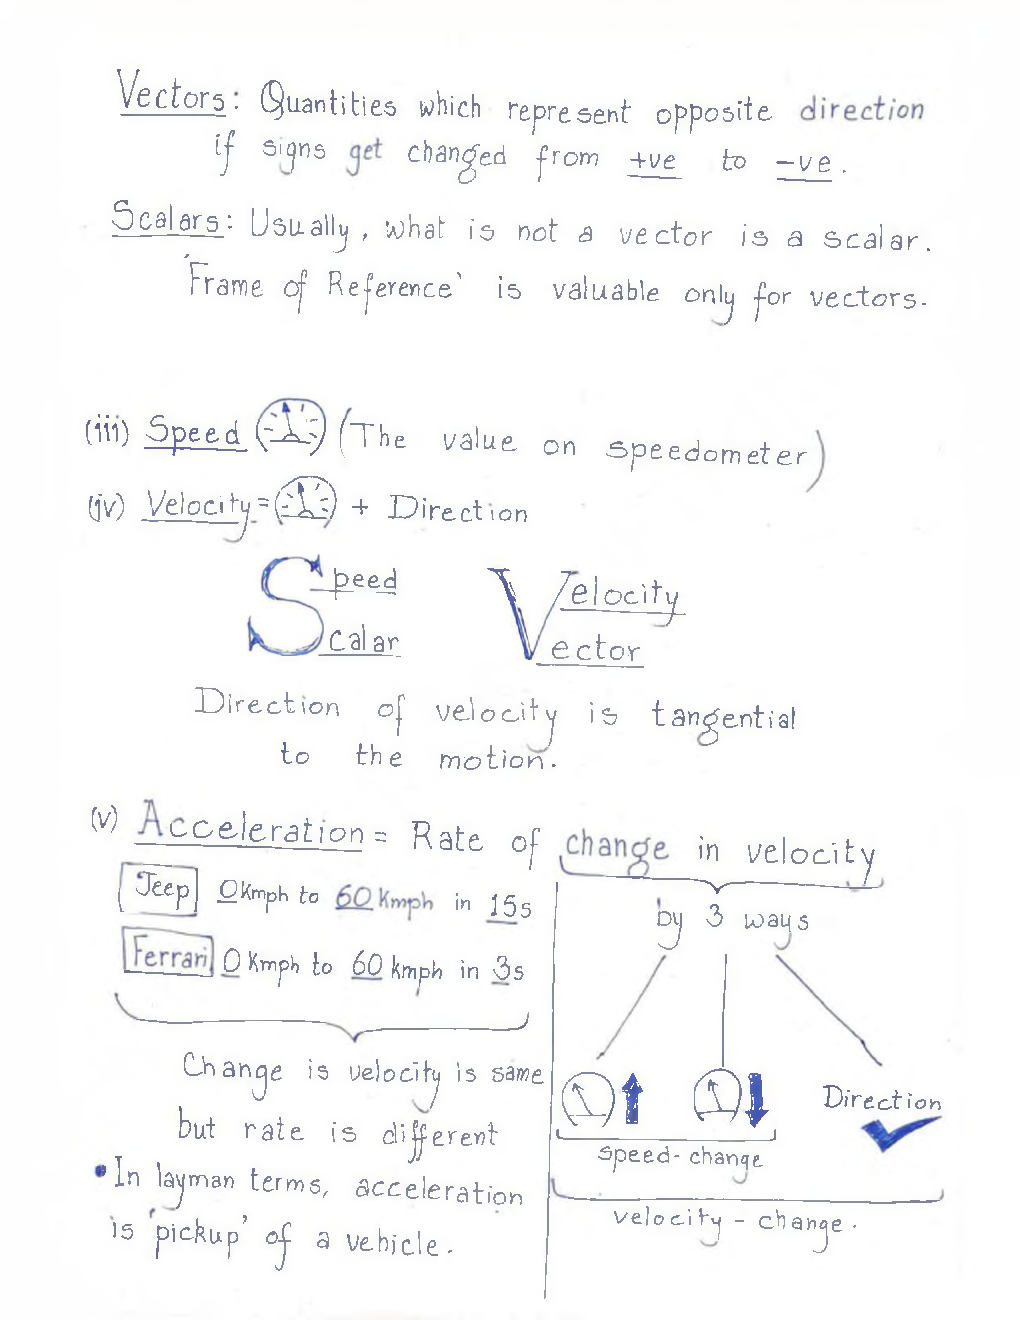 Vectors: Quantities which represent opposite direction
if signs get changed from +ve to -ve.
Scalars: Usually, what is not a vector is a scalar.
'Frame of Reference' is valuable only for vectors.
(iii) Speed (The value on speedometer)
(iv) Velocity = + Direction
Speed Velocity
Scalar Vector
Direction of velocity is tangential
to the motion.
(v) Acceleration = Rate of change in velocity
Jeep 0 Kmph to 60 Kmph in 15s
Ferrari 0 Kmph to 60 kmph in 3s
Change is velocity is same
but rate is different
• In layman terms, acceleration
is 'pickup' of a vehicle.
by 3 ways
Direction
speed-change
velocity - change.